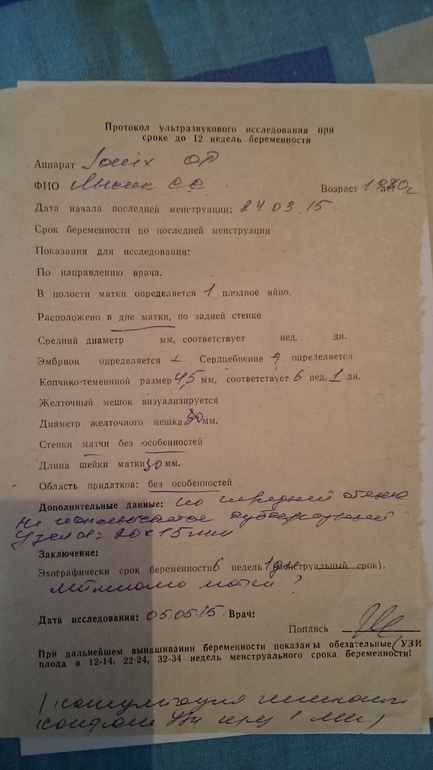 Протокол ультразвукового исследования при
сроке до 12 недель беременности
Аппарат
ФИО С С Возраст 1980г
Дата начала последней менструации: 24 03 15.
Срок беременности по последней менструации
Показания для исследования:
По направлению врача.
В полости матки определяется 1 плодное яйцо.
Расположено в дне матки, по задней стенке
Средний диаметр мм, соответствует нед. дн.
Эмбрион определяется Сердцебиение определяется
Копчико-теменной размер 4,5 мм, соответствует 6 нед. 1 дн.
Желточный мешок визуализируется
Диаметр желточного мешка мм.
Стенки матчи без особенностей
Длина шейки матки 30 мм.
Область придатков: без особенностей
Дополнительные данные: по передней
не исключается
узелок 20 х 15 мм
Заключение:
Эхографически срок беременности 6 недель 1 дн (менструальный срок).
матки ?
Дата исследования: 05.05.15. Врач:
Попдись
При дальнейшем вынашивании беременности показаны обезательные (УЗИ
плода в 12-14, 22-24, 32-34 недель менструального срока беременности!
консультация
контроль УЗИ через 1 мес)